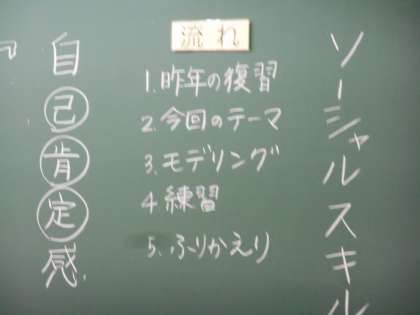 ソーシャルスキル
流れ
1.昨年の復習
2.今回のテーマ
3.モデリング
4 練習
5.ふりかえり
自己肯定感
『